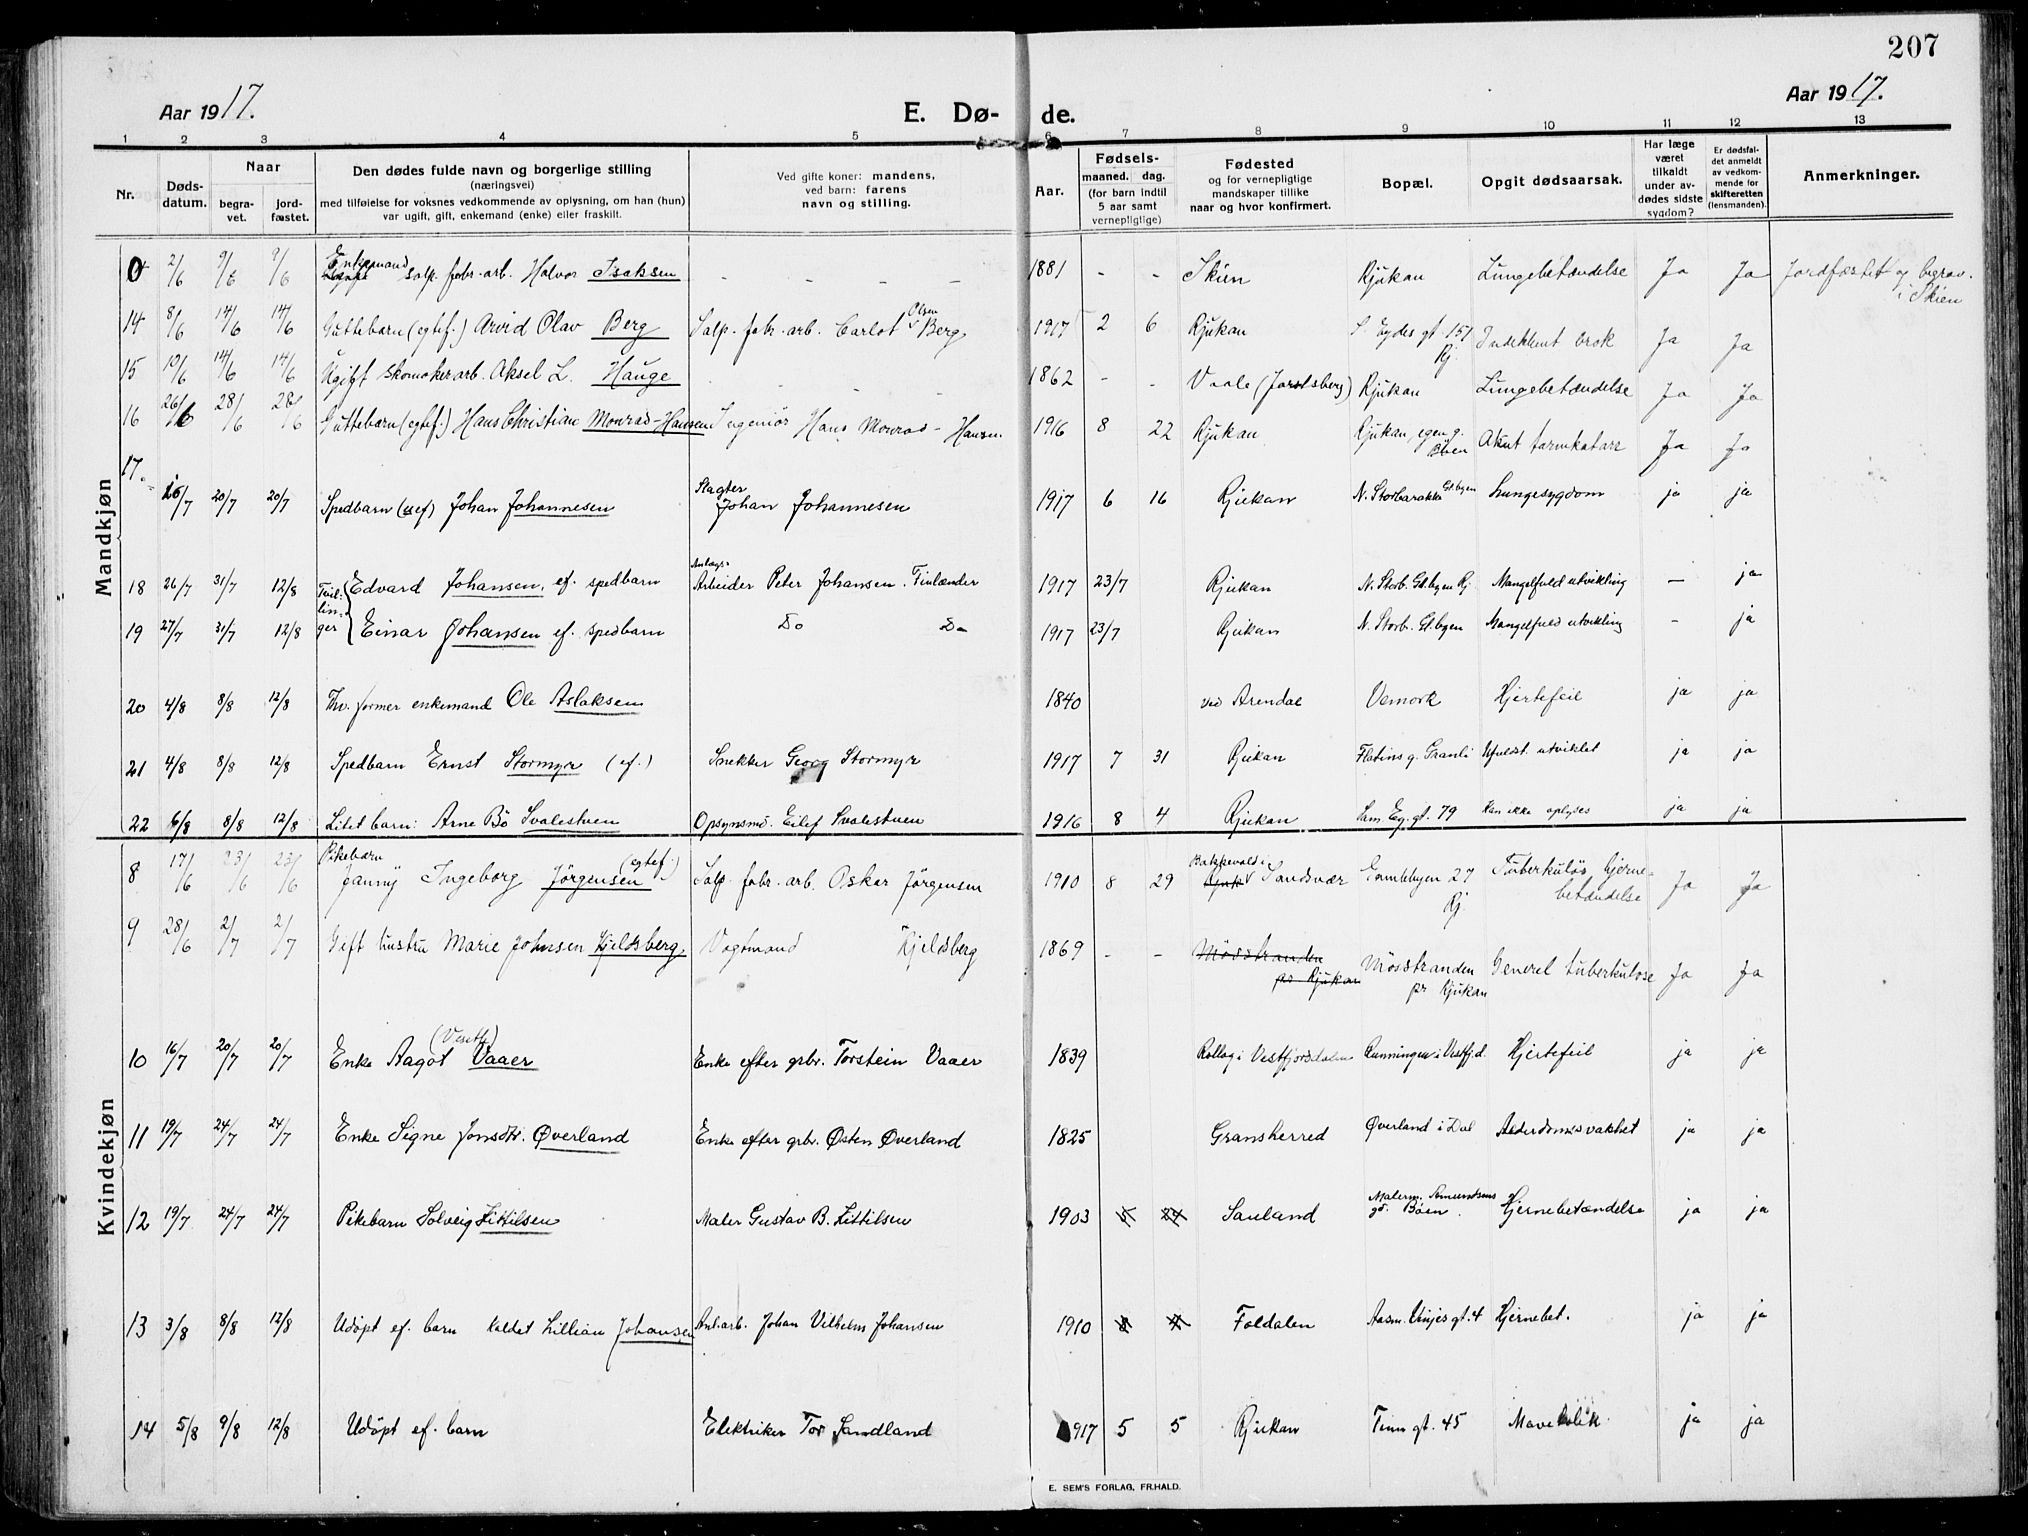 207
Aar 1917. E. Dø- de. Aar 1917.
1 2 3 4 5 6 7 8 9 10 11 12 13
Nr.
Døds-
datum.
Naar
begra-
vet.
jord-
fæstet.
Den dødes fulde navn og borgerlige stilling
(næringsvei)
med tilføielse for voksnes vedkommende av oplysning, om han (hun)
var ugift, gift, enkemand (enke) eller fraskilt.
Ved gifte koner: mandens,
ved barn: farens
navn og stilling.
Aar.
Fødsels-
maaned. dag.
(for barn indtil
5 aar samt
vernepligtige)
Fødested
og for vernepligtige
mandskaper tillike
naar og hvor konfirmert.
Bopæl.
Opgit dødsaarsak.
Har læge
været
tilkaldt
under av-
dødes sidste
sygdom?
Er dødsfal-
det anmeldt
av vedkom-
mende for
skifteretten
(lensmanden).
Anmerkninger.
Mandkjøn
0 2/6 9/6 9/6 Enkemand salp. fabr. arb. Halvor Isaksen - - - - 1881 - - Skien Rjukan Lungebetændelse Ja Ja Jordfæstet og begrav. i Skien
14 8/6 14/6 14/6 Guttebarn (egtef.) Arvid Olav Berg Salp. fabr. arb. Carlot Olsen Berg 1917 2 6 Rjukan S. Eydes gt. 151 Rj. Indeklemt brok Ja Ja
15 10/6 14/6 14/6 Ugift skomakerarb. Aksel L. Hauge - - - 1862 - - Vaale (Jarlsberg) Rjukan Lungebetændelse Ja Ja
16 26/6 28/6 28/6 Guttebarn (egtef.) Hans Christian Monrad-Hansen Ingeniør Hans Monrad-Hansen. 1916 8 22 Rjukan Rjukan, egen g. Bøen Akut tarmkatarr Ja Ja
17. 16/7 20/7 20/7 Spedbarn (ef) Johan Johannesen Slagter Johan Johannesen 1917 6 16 Rjukan N. Storbarakke Gl. byen Lungesygdom ja ja
18 26/7 31/7 12/8 Tvil-lin-ger Edvard Johansen, ef. spedbarn Anlægs-Arbeider Peter Johansen. Finlænder 1917 23/7 Rjukan N. Storb. Gl. byen Rj. Mangelfuld utvikling - ja
19 27/7 31/7 12/8 Einar Johansen ef. spedbarn Do Do 1917 23/7 Rjukan N. Storb. Gl. byen Mangelfuld utvikling - ja
20 4/8 8/8 12/8 Fhv. former enkemand Ole Aslaksen 1840 ved Arendal Vemork Hjertefeil ja ja
21 4/8 8/8 12/8 Spedbarn Ernst Stormyr (ef.) Snekker Georg Stormyr 1917 7 31 Rjukan Flatins g. Granli Ufuldst. utviklet ja ja
22 6/8 8/8 12/8 Litet barn: Arne Bö Svalestuen Opsynsm. Eilef Svalestuen 1916 8 4 Rjukan Sam. Ey. gt. 79 Kan ikke oplyses ja ja
Kvindekjøn
8 17/6 23/6 23/6 Pikebarn Janny Ingeborg Jørgensen (egtef.) Salp. fabr. arb. Oskar Jørgensen 1910 8 29 Bakkevold i Sandsvær Gamlebyen 27 Rj. Tuberkuløs hjerne-betændelse Ja Ja
9 28/6 2/7 2/7 Gift hustru Marie Johnsen Kjeldsberg, Vogtmand Kjeldsberg 1869 - - Mösstranden pr. Rjukan Mösstranden pr Rjukan Generel tuberkulose Ja Ja
10 16/7 20/7 20/7 Enke Aagot (Vesetle) Vaaer Enke efter grbr. Torstein Vaaer 1839 Rollag i Vestfjorddalen Runningen i Vestfjd. Hjertefeil ja ja
11 19/7 24/7 24/7 Enke Signe Jonsdtr. Øverland Enke efter grbr. Østen Øverland 1825 Gransherred Øverland i Dal Alderdomssvakhet ja ja
12 19/7 24/7 24/7 Pikebarn Solveig Kittilsen Maler Gustav B. Kittilsen 1903 5 24 Sauland Malerm. Amundsens gd. Bøen. Hjernebetændelse ja ja
13 3/8 8/8 12/8 Udöpt ef. barn kaldet Lillian Johansen Anl. arb. Johan Vilhelm Johansen 1910 Foldalen Aasm. Vinjes gt. 4 Hjernebet. ja ja
14 5/8 9/8 12/8 Udöpt ef. barn Elektriker Tor Sandland 1917 5 5 Rjukan Tinn gt. 45 Mavekolik ja ja
E. SEM'S FORLAG, FR.HALD.